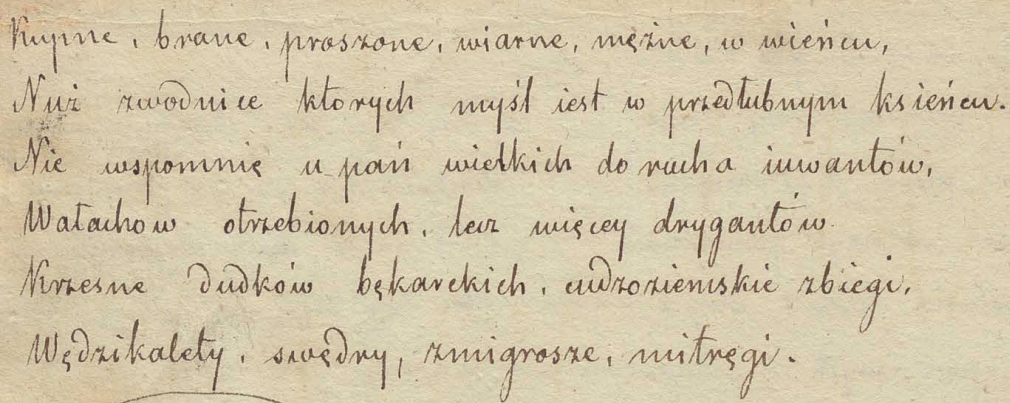 Kupne, brane, proszone, wiarne, mężne, w wieńcu,
Nuż zwodnice których myśl iest w przedłubnym ksieńcu.
Nie wspomnię u pań wielkich do rucha iuwantów,
Wałachow otrzebionych, lecz więcey drygantów.
Krzesne dudków bękarckich, cudzoziemskie zbiegi,
Wędzikalety, swędry, zmigrosze, mitręgi.